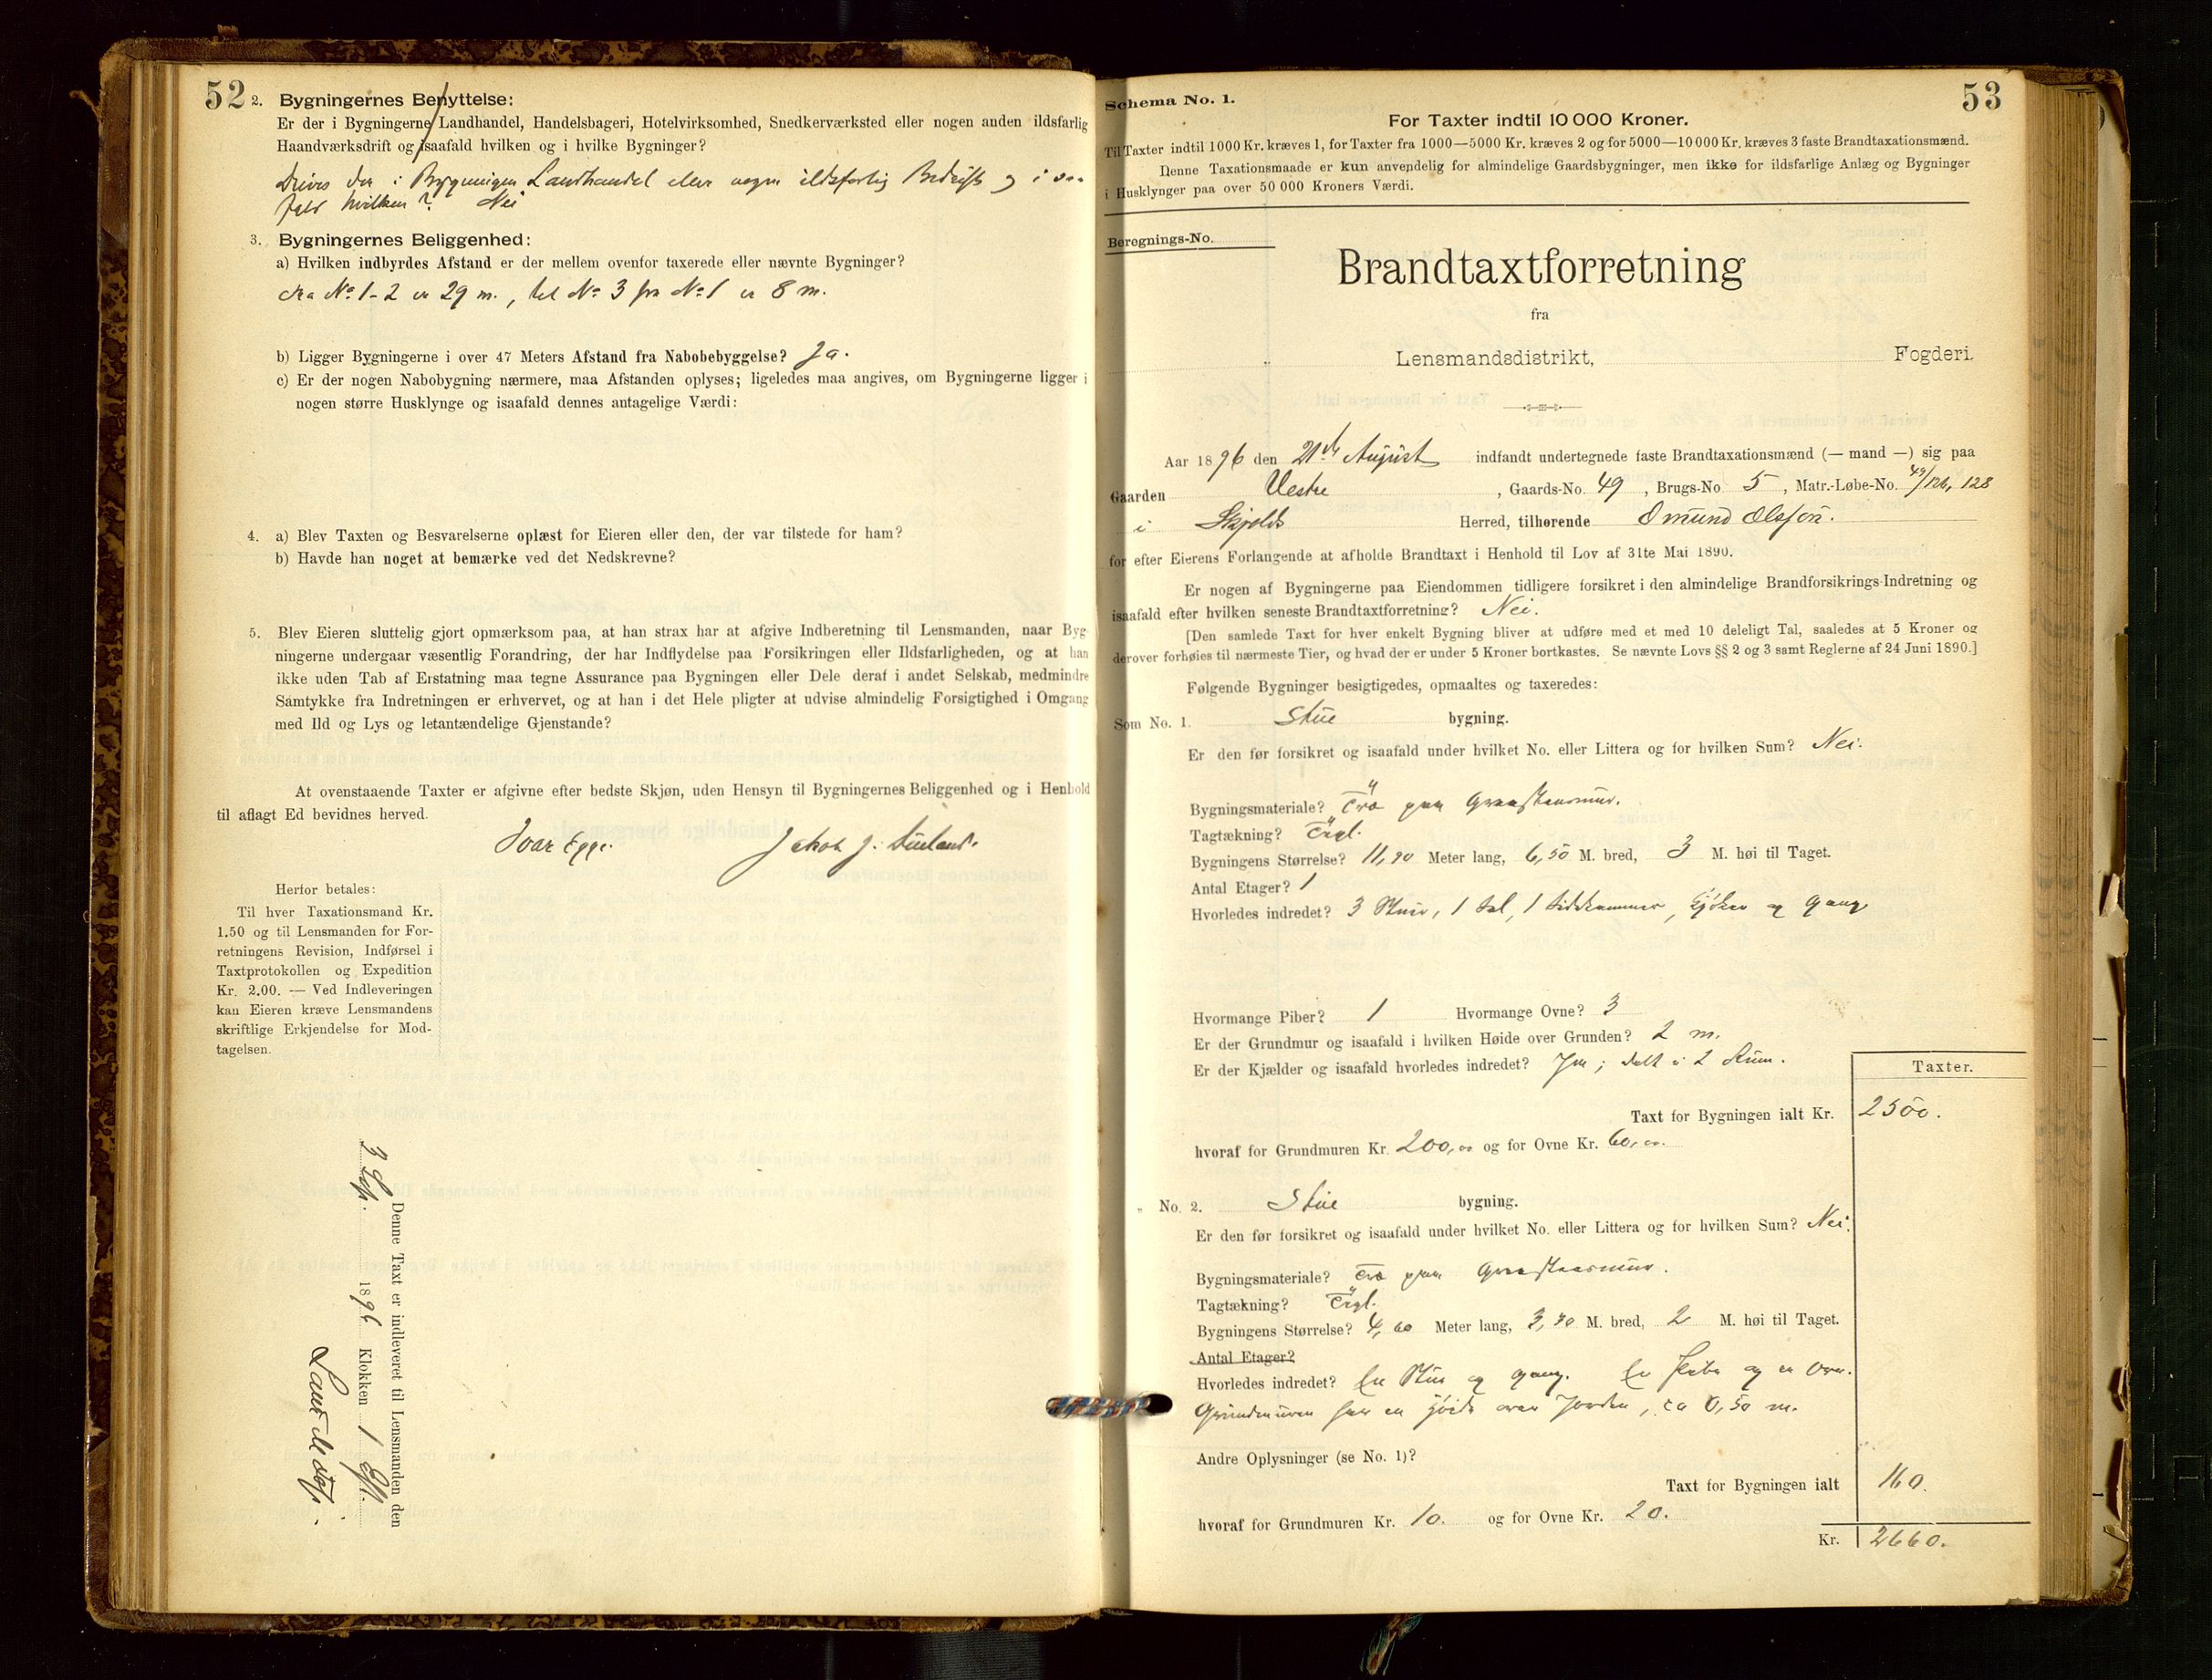 52
2. Bygningernes Benyttelse:
Er der i Bygningerne Landhandel, Handelsbageri, Hotelvirksomhed, Snedkerværksted eller nogen anden ildsfarlig
Haandværksdrift og isaafald hvilken og i hvilke Bygninger?
Drives der i Bygningen Landhandel eller nogen ildsfarlig Bedrift og i saa
fald hvilken? Nei
3. Bygningernes Beliggenhed:
a) Hvilken indbyrdes Afstand er der mellem ovenfor taxerede eller nævnte Bygninger?
Fra No 1-2 er 29 m., til No 3 fra No 1 er 8 m.
b) Ligger Bygningerne i over 47 Meters Afstand fra Nabobebyggelse? Ja.
c) Er der nogen Nabobygning nærmere, maa Afstanden oplyses; ligeledes maa angives, om Bygningerne ligger i
nogen større Husklynge og isaafald dennes antagelige Værdi:
4. a) Blev Taxten og Besvarelserne oplæst for Eieren eller den, der var tilstede for ham?
b) Havde han noget at bemærke ved det Nedskrevne?
5. Blev Eieren sluttelig gjort opmærksom paa, at han strax har at afgive Indberetning til Lensmanden, naar Byg-
ningerne undergaar væsentlig Forandring, der har Indflydelse paa Forsikringen eller Ildsfarligheden, og at han
ikke uden Tab af Erstatning maa tegne Assurance paa Bygningen eller Dele deraf i andet Selskab, medmindre
Samtykke fra Indretningen er erhvervet, og at han i det Hele pligter at udvise almindelig Forsigtighed i Omgang
med Ild og Lys og letantændelige Gjenstande?
At ovenstaaende Taxter er afgivne efter bedste Skjøn, uden Hensyn til Bygningernes Beliggenhed og i Henhold
til aflagt Ed bevidnes herved.
Ivar Egge. Jakob J.
Herfor betales:
Til hver Taxationsmand Kr.
1.50 og til Lensmanden for For-
retningens Revision, Indførsel i
Taxtprotokollen og Expedition
Kr. 2.00. — Ved Indleveringen
kan Eieren kræve Lensmandens
skriftlige Erkjendelse for Mod-
tagelsen.
Denne Taxt er indleveret til Lensmanden den
3 Sep. 1896 Klokken 1 Eft.
53
Schema No. 1.
For Taxter indtil 10 000 Kroner.
Til Taxter indtil 1000 Kr. kræves 1, for Taxter fra 1000—5000 Kr. kræves 2 og for 5000—10 000 Kr. kræves 3 faste Brandtaxationsmænd.
Denne Taxationsmaade er kun anvendelig for almindelige Gaardsbygninger, men ikke for ildsfarlige Anlæg og Bygninger
i Husklynger paa over 50 000 Kroners Værdi.
Beregnings-No.
Brandtaxtforretning
fra
Lensmandsdistrikt, Fogderi.
Aar 1896 den 21de August indfandt undertegnede faste Brandtaxationsmænd (— mand —) sig paa
Gaarden Vestre, Gaards-No. 49, Brugs-No 5, Matr.-Løbe-No. 49/126, 128
i Skjolds Herred, tilhørende Omund Olsson.
for efter Eierens Forlangende at afholde Brandtaxt i Henhold til Lov af 31te Mai 1890.
Er nogen af Bygningerne paa Eiendommen tidligere forsikret i den almindelige Brandforsikrings-Indretning og
isaafald efter hvilken seneste Brandtaxtforretning? Nei.
[Den samlede Taxt for hver enkelt Bygning bliver at udføre med et med 10 deleligt Tal, saaledes at 5 Kroner og
derover forhøies til nærmeste Tier, og hvad der er under 5 Kroner bortkastes. Se nævnte Lovs §§ 2 og 3 samt Reglerne af 24 Juni 1890.]
Følgende Bygninger besigtigedes, opmaaltes og taxeredes:
Som No. 1. Stue bygning.
Er den før forsikret og isaafald under hvilket No. eller Littera og for hvilken Sum? Nei.
Bygningsmateriale? Træ paa Graastensmur.
Tagtækning? Tegl.
Bygningens Størrelse? 11,90 Meter lang, 6,50 M. bred, 3 M. høi til Taget.
Antal Etager? 1
Hvorledes indredet? 3 Stuer, 1 Sal, 1 Sidekammer, Kjøken og Gang
Hvormange Piber? 1 Hvormange Ovne? 3
Er der Grundmur og isaafald i hvilken Høide over Grunden? 2 m.
Er der Kjælder og isaafald hvorledes indredet? Ja; delt i 2 Rum.
Taxter.
Taxt for Bygningen ialt Kr. 2500.
hvoraf for Grundmuren Kr. 200,00 og for Ovne Kr. 60,00.
" No. 2. Stue bygning.
Er den før forsikret og isaafald under hvilket No. eller Littera og for hvilken Sum? Nei.
Bygningsmateriale? Træ paa Graastensmur.
Tagtækning? Tegl.
Bygningens Størrelse? 4,60 Meter lang, 3,70 M. bred, 2 M. høi til Taget.
Antal Etager?
Hvorledes indredet? En Stue og Gang. En Pibe og en Ovn.
Grundmuren har en Høide over Jorden, ca 0,50 m.
Andre Oplysninger (se No. 1)?
Taxt for Bygningen ialt 160.
hvoraf for Grundmuren Kr. 10. og for Ovne Kr. 20.
Kr. 2660.